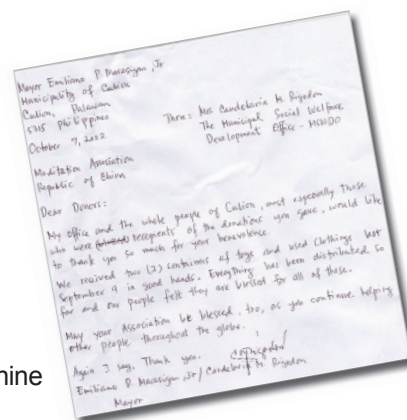 Mayor Emiliano P. Marasigan, Jr
Municipality of Culion
Culion, Palawan
5315 Philippines
October 9, 2002
Thru: Mrs Candelaria M. Rigodon
The Municipal Social Welfare
Development Office - MSWDO
Meditation Association
Republic of China
Dear Donors:
My office and the whole people of Culion, most especially those
who were recepients of the donations you gave, would like
to thank you so much for your benevolence.
We recived two (2) containers of toys and used clothings last
September 9 in good hands. Everything has been distributed so
for and our people felt they are blessed for all of these.
May your Association be blessed, too, as you continue helping
other people throughout the globe.
Again I say, Thank you.
Emiliano P. Marasigan, Jr / Candelaria M. Rigodon
Mayor
nine